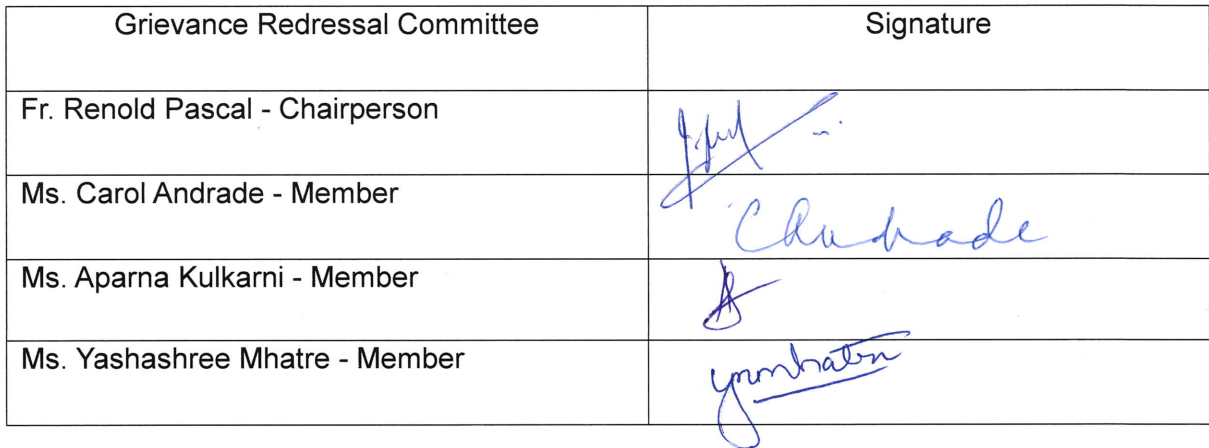 Grievance Redressal Committee Signature
Fr. Renold Pascal - Chairperson
Ms. Carol Andrade - Member
CAndrade
Ms. Aparna Kulkarni - Member
Ms. Yashashree Mhatre - Member